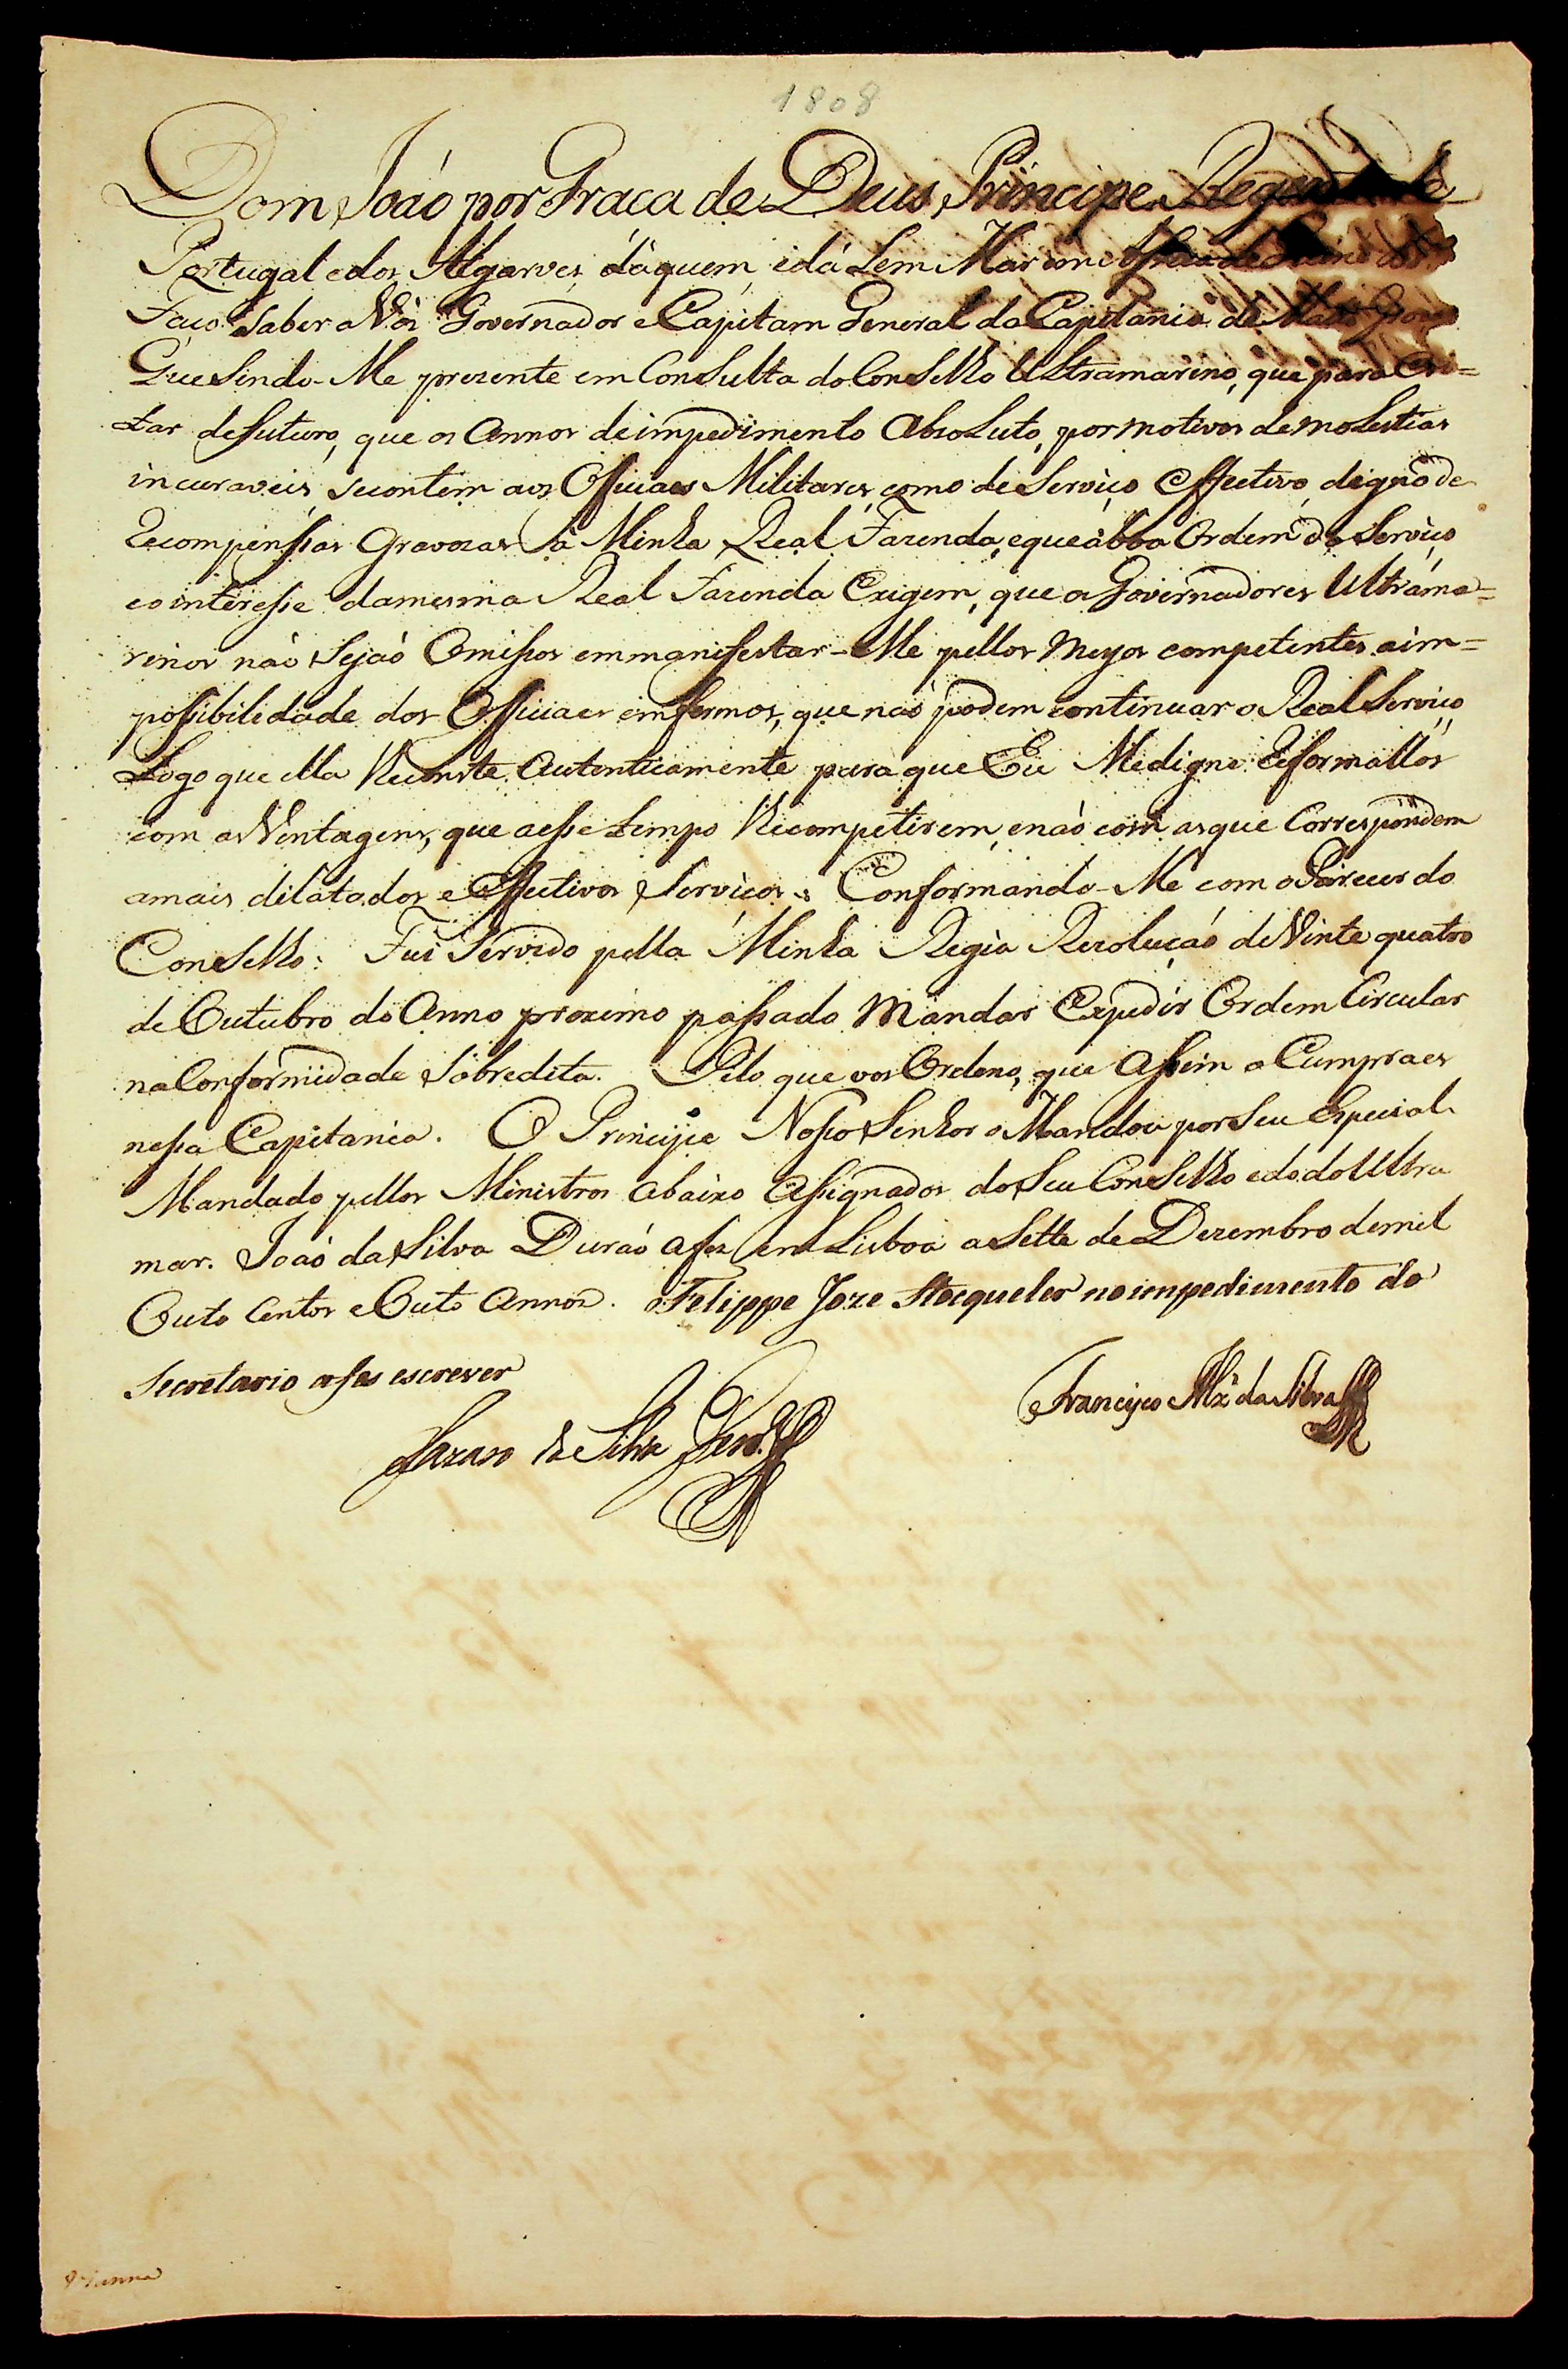 1808
Dom Joaó por Graca de Deus Principe Regente de
Portugal e dos Algarves, dáquem, e dá Lem Mar em Africa de Guine &
Faço Saber a Vós Governador e Capitam General da Capitania de Mato Groso
Que Sindo-Me prezente em Consulta do Conselho Ultramarino, que para Evi=
tar defuturo, que os Annos de impedimento Absoluto, por motivos de molestias
incuraveis, se contem aos Officiaes Militares, como de Serviço Effectivo, digno de
Recompenssas Gravozas á Minha Real Fazenda, e que á bôa Ordem do Serviço
e o interesse da mesma Real Fazenda Exigem, que os Governadores Ultrama=
rinos naó Sejaó Omissos em manifestar-Me pellos Meyos competentes a im=
possibilidade dos Officiaes emfermos, que naó podem continuar o Real Serviço
Logo que ella Autenticamente para que Eu Me digne Reformallos
com as Ventagens, que a esse tempo lhe competirem, e naó com as que Correspondem
a mais dilatados e Effectivos Serviços: Conformando-Me com o Parecer do
Conselho: Fui Servido pella Minha Regia Rezoluçaó de Vinte quatro
de Outubro do Anno proximo passado Mandar Expedir Ordem Circular
na Conformidade Sobredita. Pelo que vos Ordeno, que Assim o Cumpraes
nessa Capitania. O Principe Nosso Senhor o Mandou por Seu Especial
Mandado pellos Ministros abaixo Assignados do Seu Conselho e do do Ultra
mar. Joaó da Silva Duraó a fez em Lisboa a Sette de Dezembro de mil
Outo Centos e Outo Annos. Felippe Joze Stocqueler no impedimento do
Secretario a fes escrever
Francisco Alz' da Silva
Lazaro da Silva Ferr.ª